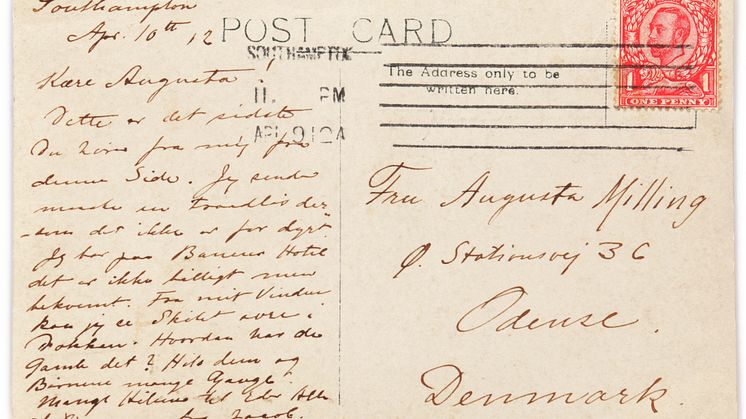 Southampton
Apr. 10th 12
POST CARD
SOUTHAMPTON
11. PM
AP 9 12 A
The Address only to be
written here.
ONE PENNY
1 1
Kære Augusta!
Dette er det sidste
Du hører fra mig fra
denne Side. Jeg sender
maaske en Traadløs der-
som det ikke er for dyrt
Jeg bor paa Hotel
det er ikke billigt men
bekvemt. Fra mit Vindue
kan jeg se Skibet være i
Dokken. Hvordan har de
Gamle det? Hils dem og
Børnene mange Gange
Mange Hilsner til Eder Alle
Jacob.
Fru Augusta Milling
Ø. Stationsvej 36
Odense.
Denmark.